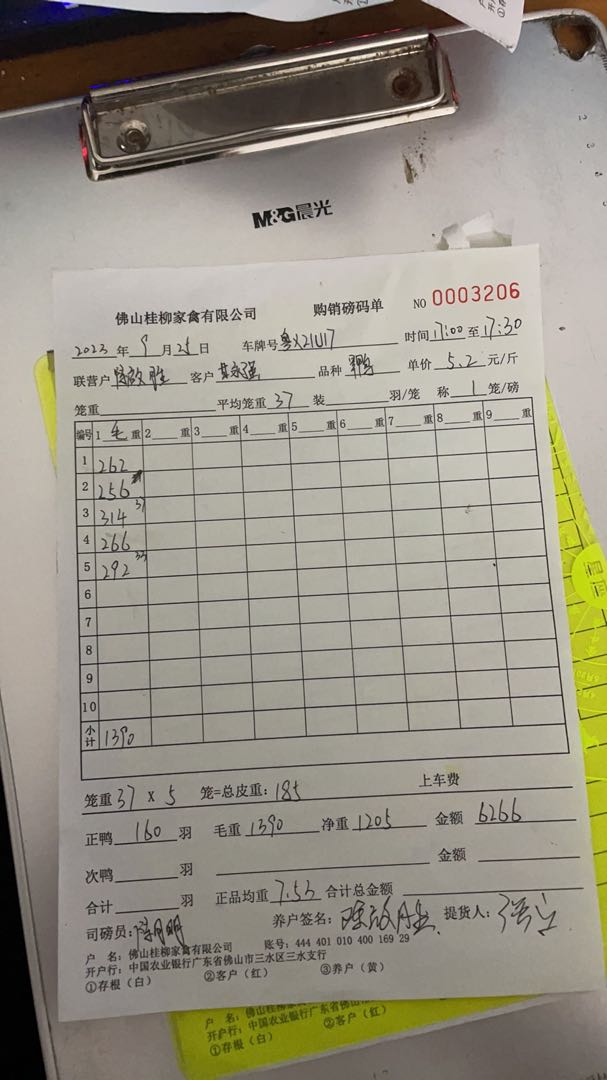 M&G晨光
佛山桂柳家禽有限公司 购销磅码单 NO 0003206
2023 年 9 月 25 日 车牌号 粤X21U17 时间 17:00 至 17:30
联营户 客户 品种 鸭 单价 5.2 元/斤
笼重 平均笼重 37 装 羽/笼 称 1 笼/磅
编号 1 毛 重 2 重 3 重 4 重 5 重 6 重 7 重 8 重 9 重
1 262
2 256
3 314 37
4 266
5 292 33
6
7
8
9
10
小计 1390
笼重 37 x 5 笼=总皮重: 185 上车费
正鸭 160 羽 毛重 1390 净重 1205 金额 6266
次鸭 羽 金额
合计 羽 正品均重 7.53 合计总金额
司磅员: 养户签名: 提货人:
户 名: 佛山桂柳家禽有限公司 账号: 444 401 010 400 169 29
开户行: 中国农业银行广东省佛山市三水区三水支行
①存根(白) ②客户(红) ③养户(黄)
户 名: 佛山桂柳家禽有限公司
开户行: 中国农业银行广东省佛山市
①存根(白) ②客户(红)